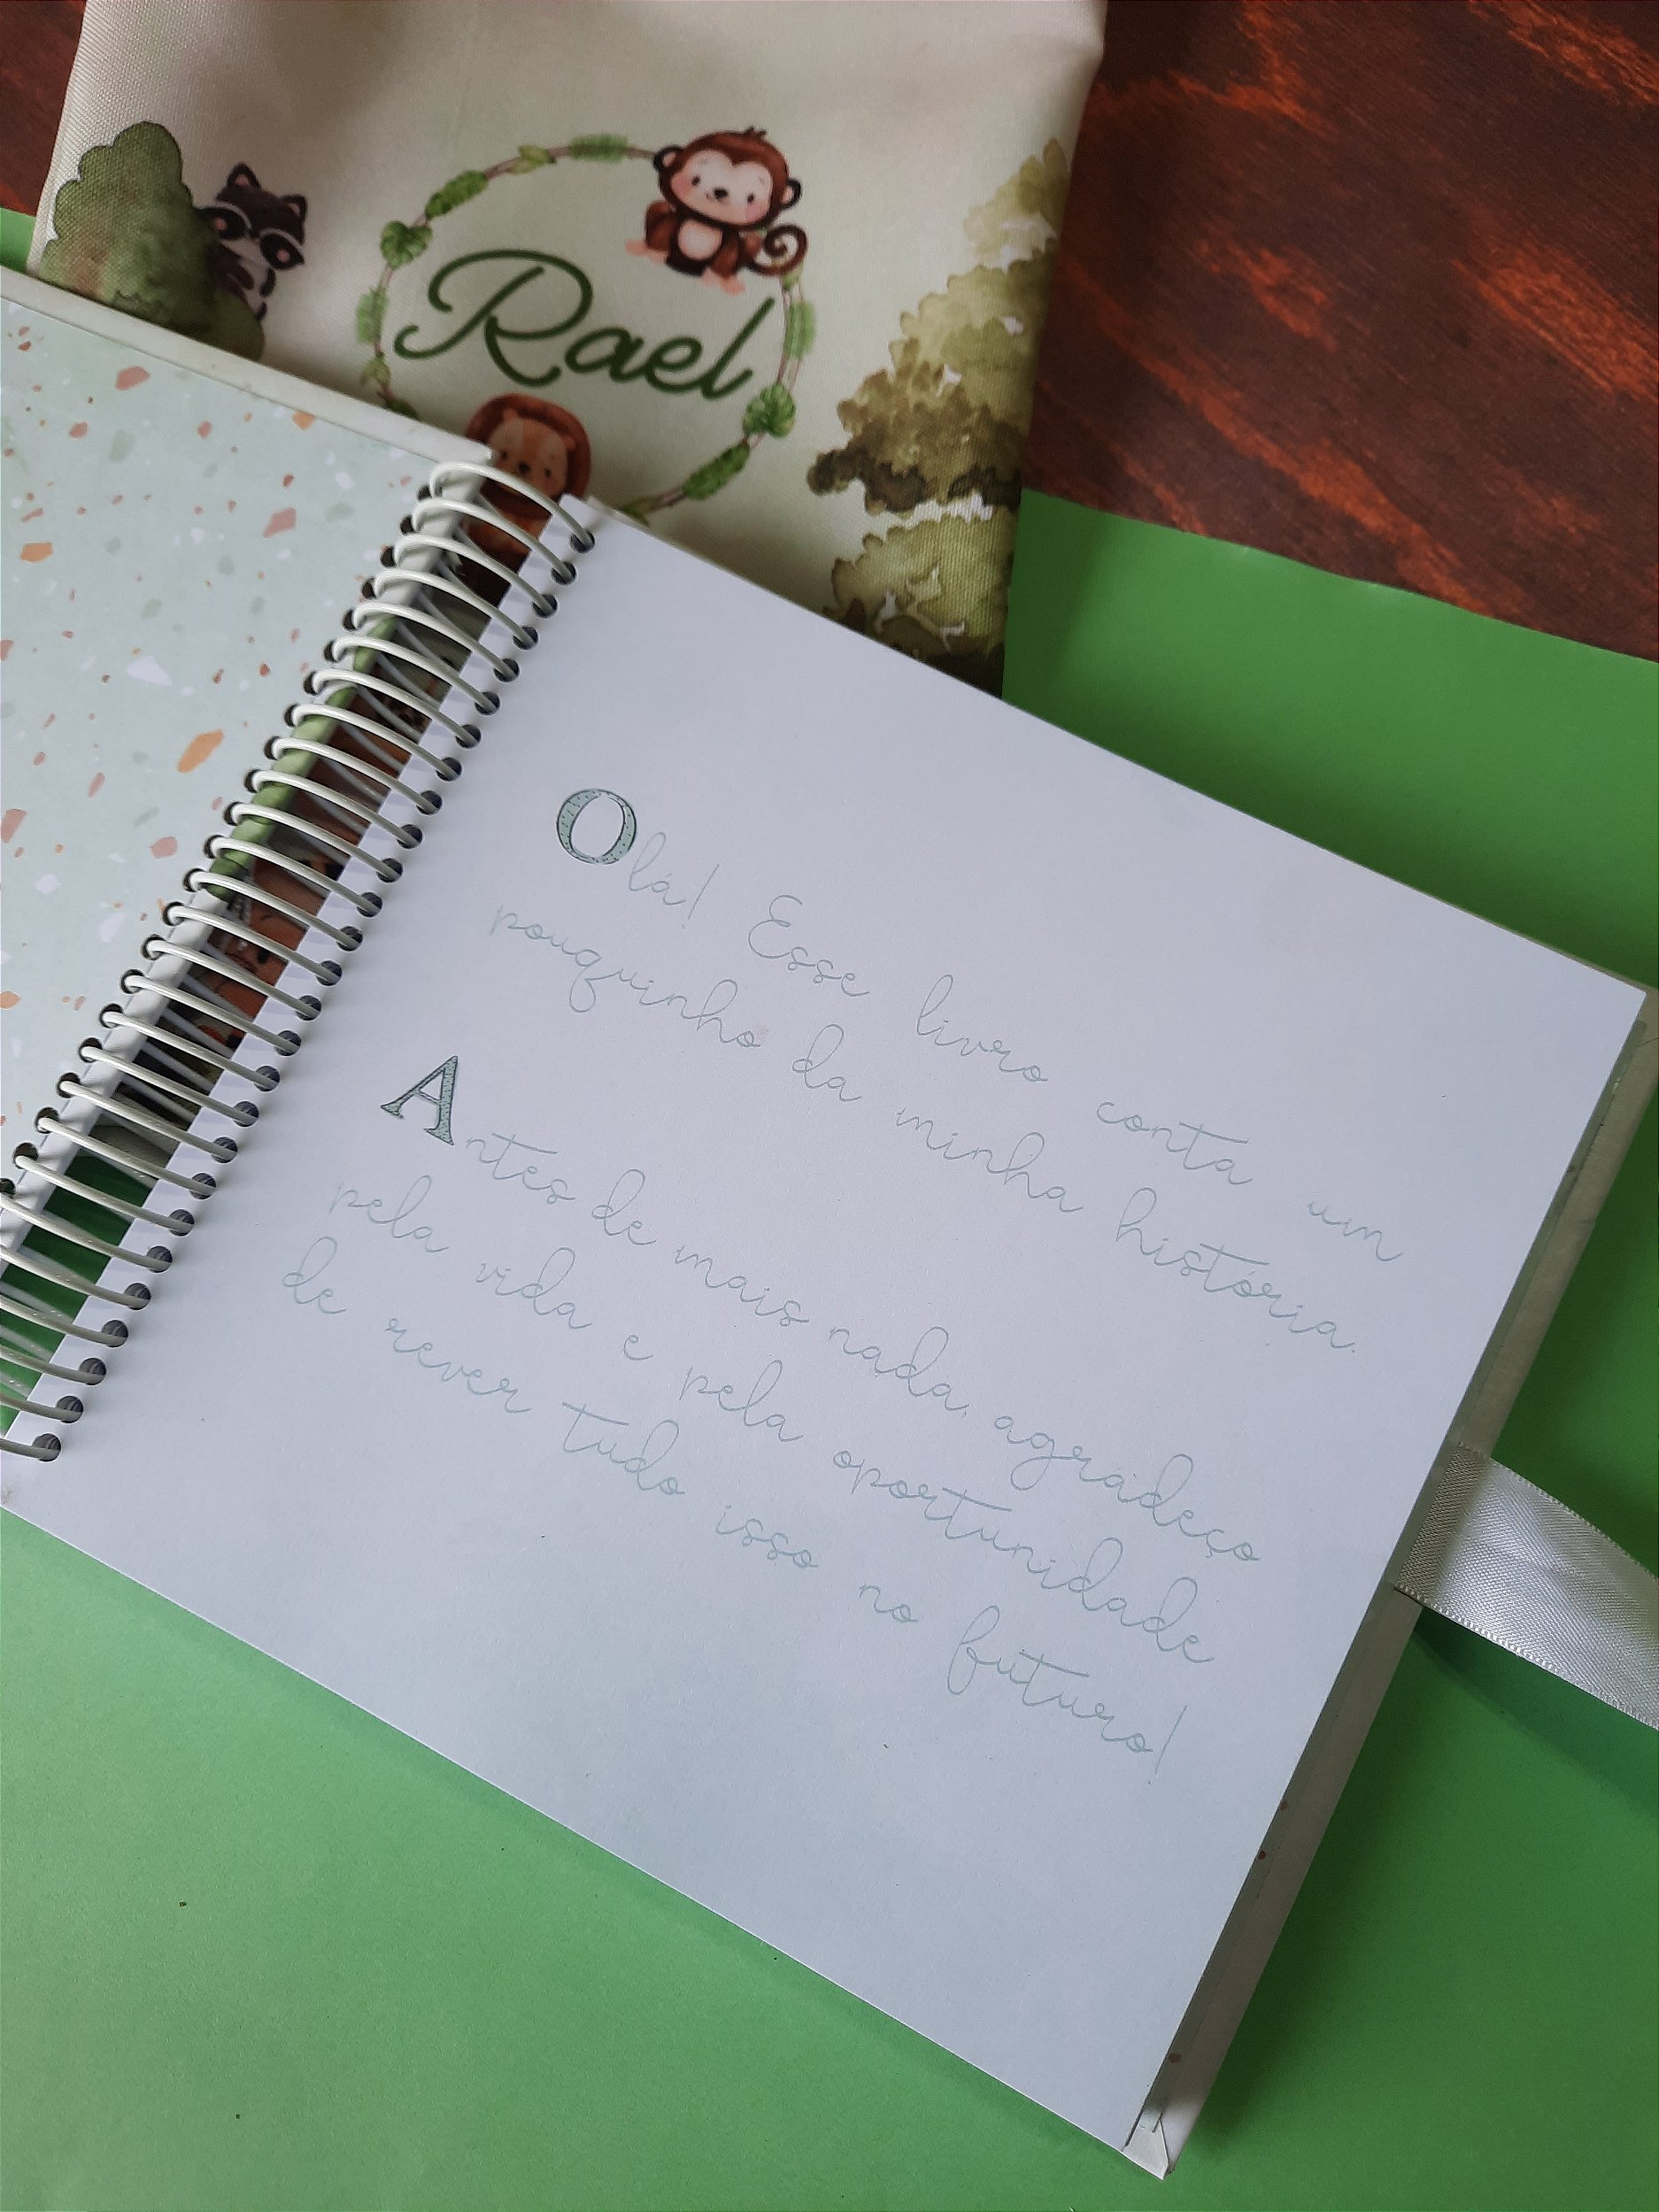 Rael
Olá! Esse livro conta um
pouquinho da minha história.
Antes de mais nada, agradeço
pela vida e pela oportunidade
de rever tudo isso no futuro!